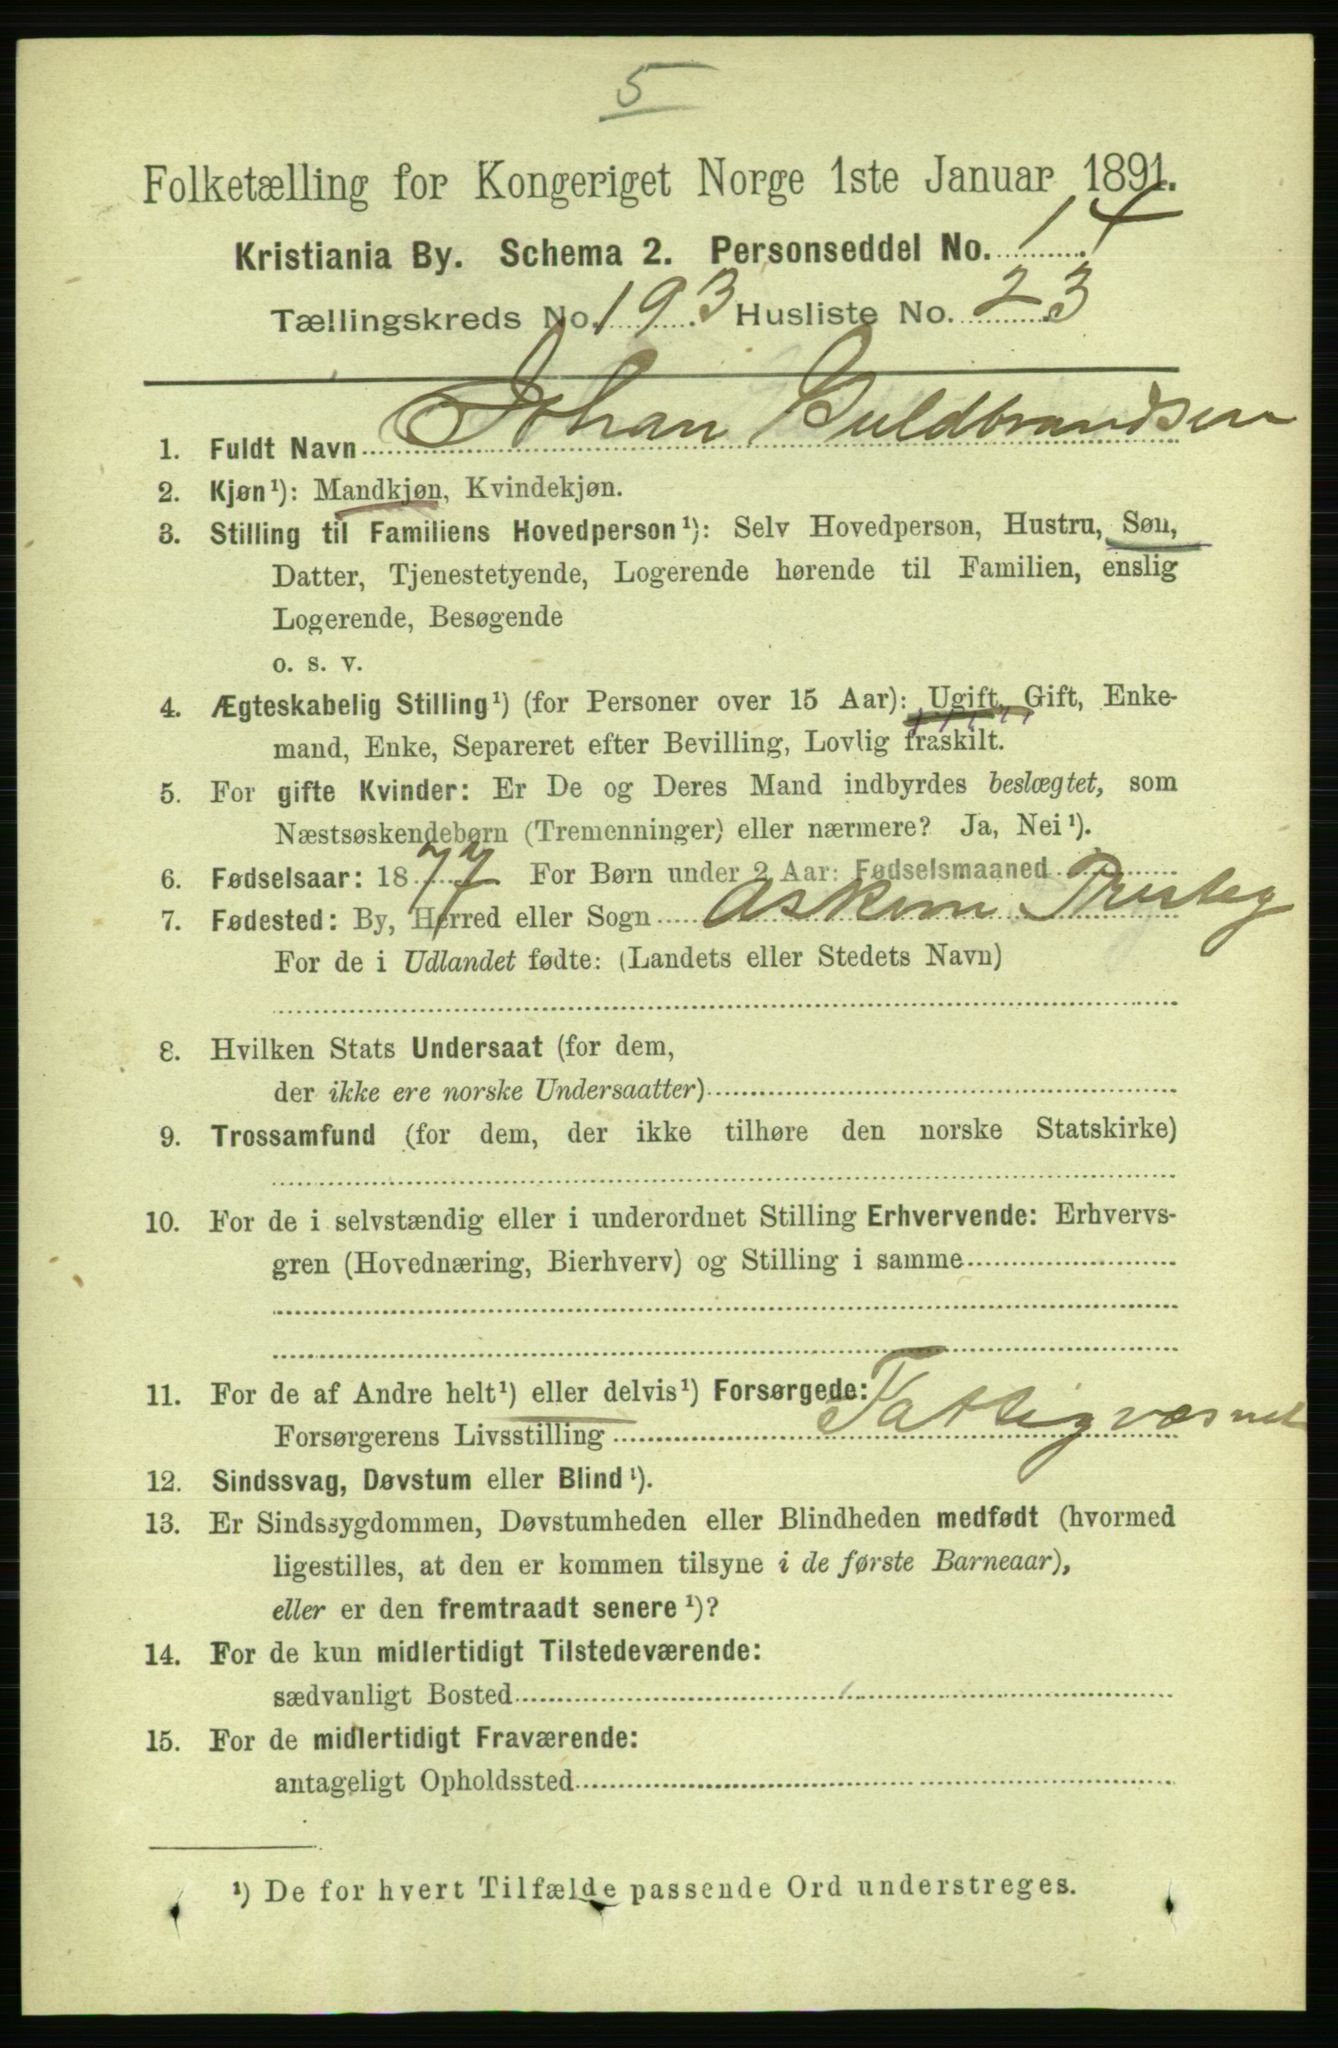 5
Folketælling for Kongeriget Norge 1ste Januar 1891.
Kristiania By. Schema 2. Personseddel No. 14
Tællingskreds No. 193 Husliste No. 23
1. Fuldt Navn Johan Guldbrandsen
2. Kjøn¹): Mandkjøn, Kvindekjøn.
3. Stilling til Familiens Hovedperson¹): Selv Hovedperson, Hustru, Søn,
Datter, Tjenestetyende, Logerende hørende til Familien, enslig
Logerende, Besøgende
o. s. v.
4. Ægteskabelig Stilling¹) (for Personer over 15 Aar): Ugift, Gift, Enke-
mand, Enke, Separeret efter Bevilling, Lovlig fraskilt.
5. For gifte Kvinder: Er De og Deres Mand indbyrdes beslægtet, som
Næstsøskendebørn (Tremenninger) eller nærmere? Ja, Nei¹).
6. Fødselsaar: 1877 For Børn under 2 Aar: Fødselsmaaned
7. Fødested: By, Herred eller Sogn Askim
For de i Udlandet fødte: (Landets eller Stedets Navn)
8. Hvilken Stats Undersaat (for dem,
der ikke ere norske Undersaatter)
9. Trossamfund (for dem, der ikke tilhøre den norske Statskirke)
10. For de i selvstændig eller i underordnet Stilling Erhvervende: Erhvervs-
gren (Hovednæring, Bierhverv) og Stilling i samme
11. For de af Andre helt¹) eller delvis¹) Forsørgede:
Forsørgerens Livsstilling Fattigvæsnet
12. Sindssvag, Døvstum eller Blind¹).
13. Er Sindssygdommen, Døvstumheden eller Blindheden medfødt (hvormed
ligestilles, at den er kommen tilsyne i de første Barneaar),
eller er den fremtraadt senere¹)?
14. For de kun midlertidigt Tilstedeværende:
sædvanligt Bosted
15. For de midlertidigt Fraværende:
antageligt Opholdssted
¹) De for hvert Tilfælde passende Ord understreges.